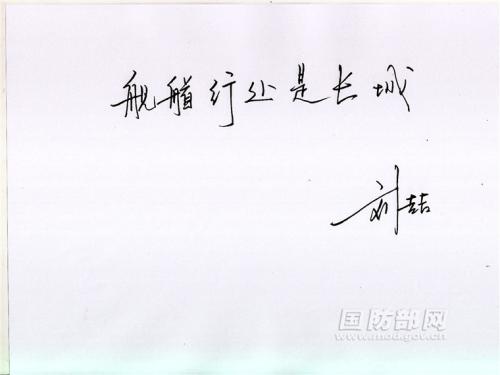 舰艏行处是长城
刘喆
国防部网
www.mod.gov.cn